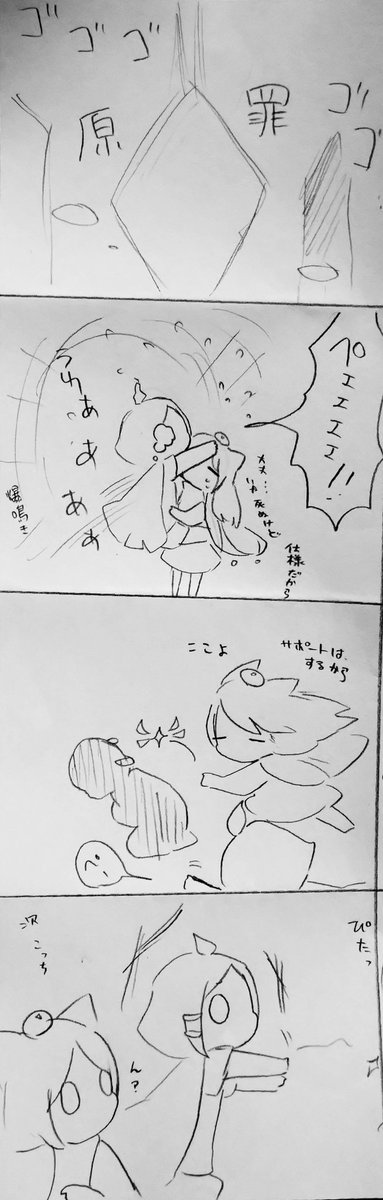 ゴゴゴ
原
罪
ゴゴ
ペェェェェ!!
うわぁぁぁぁ
爆鳴き
メメ…
いや死ぬけど
仕様だから
サポートは、
するから
ここよ
ぴたっ
次こっち
ん?